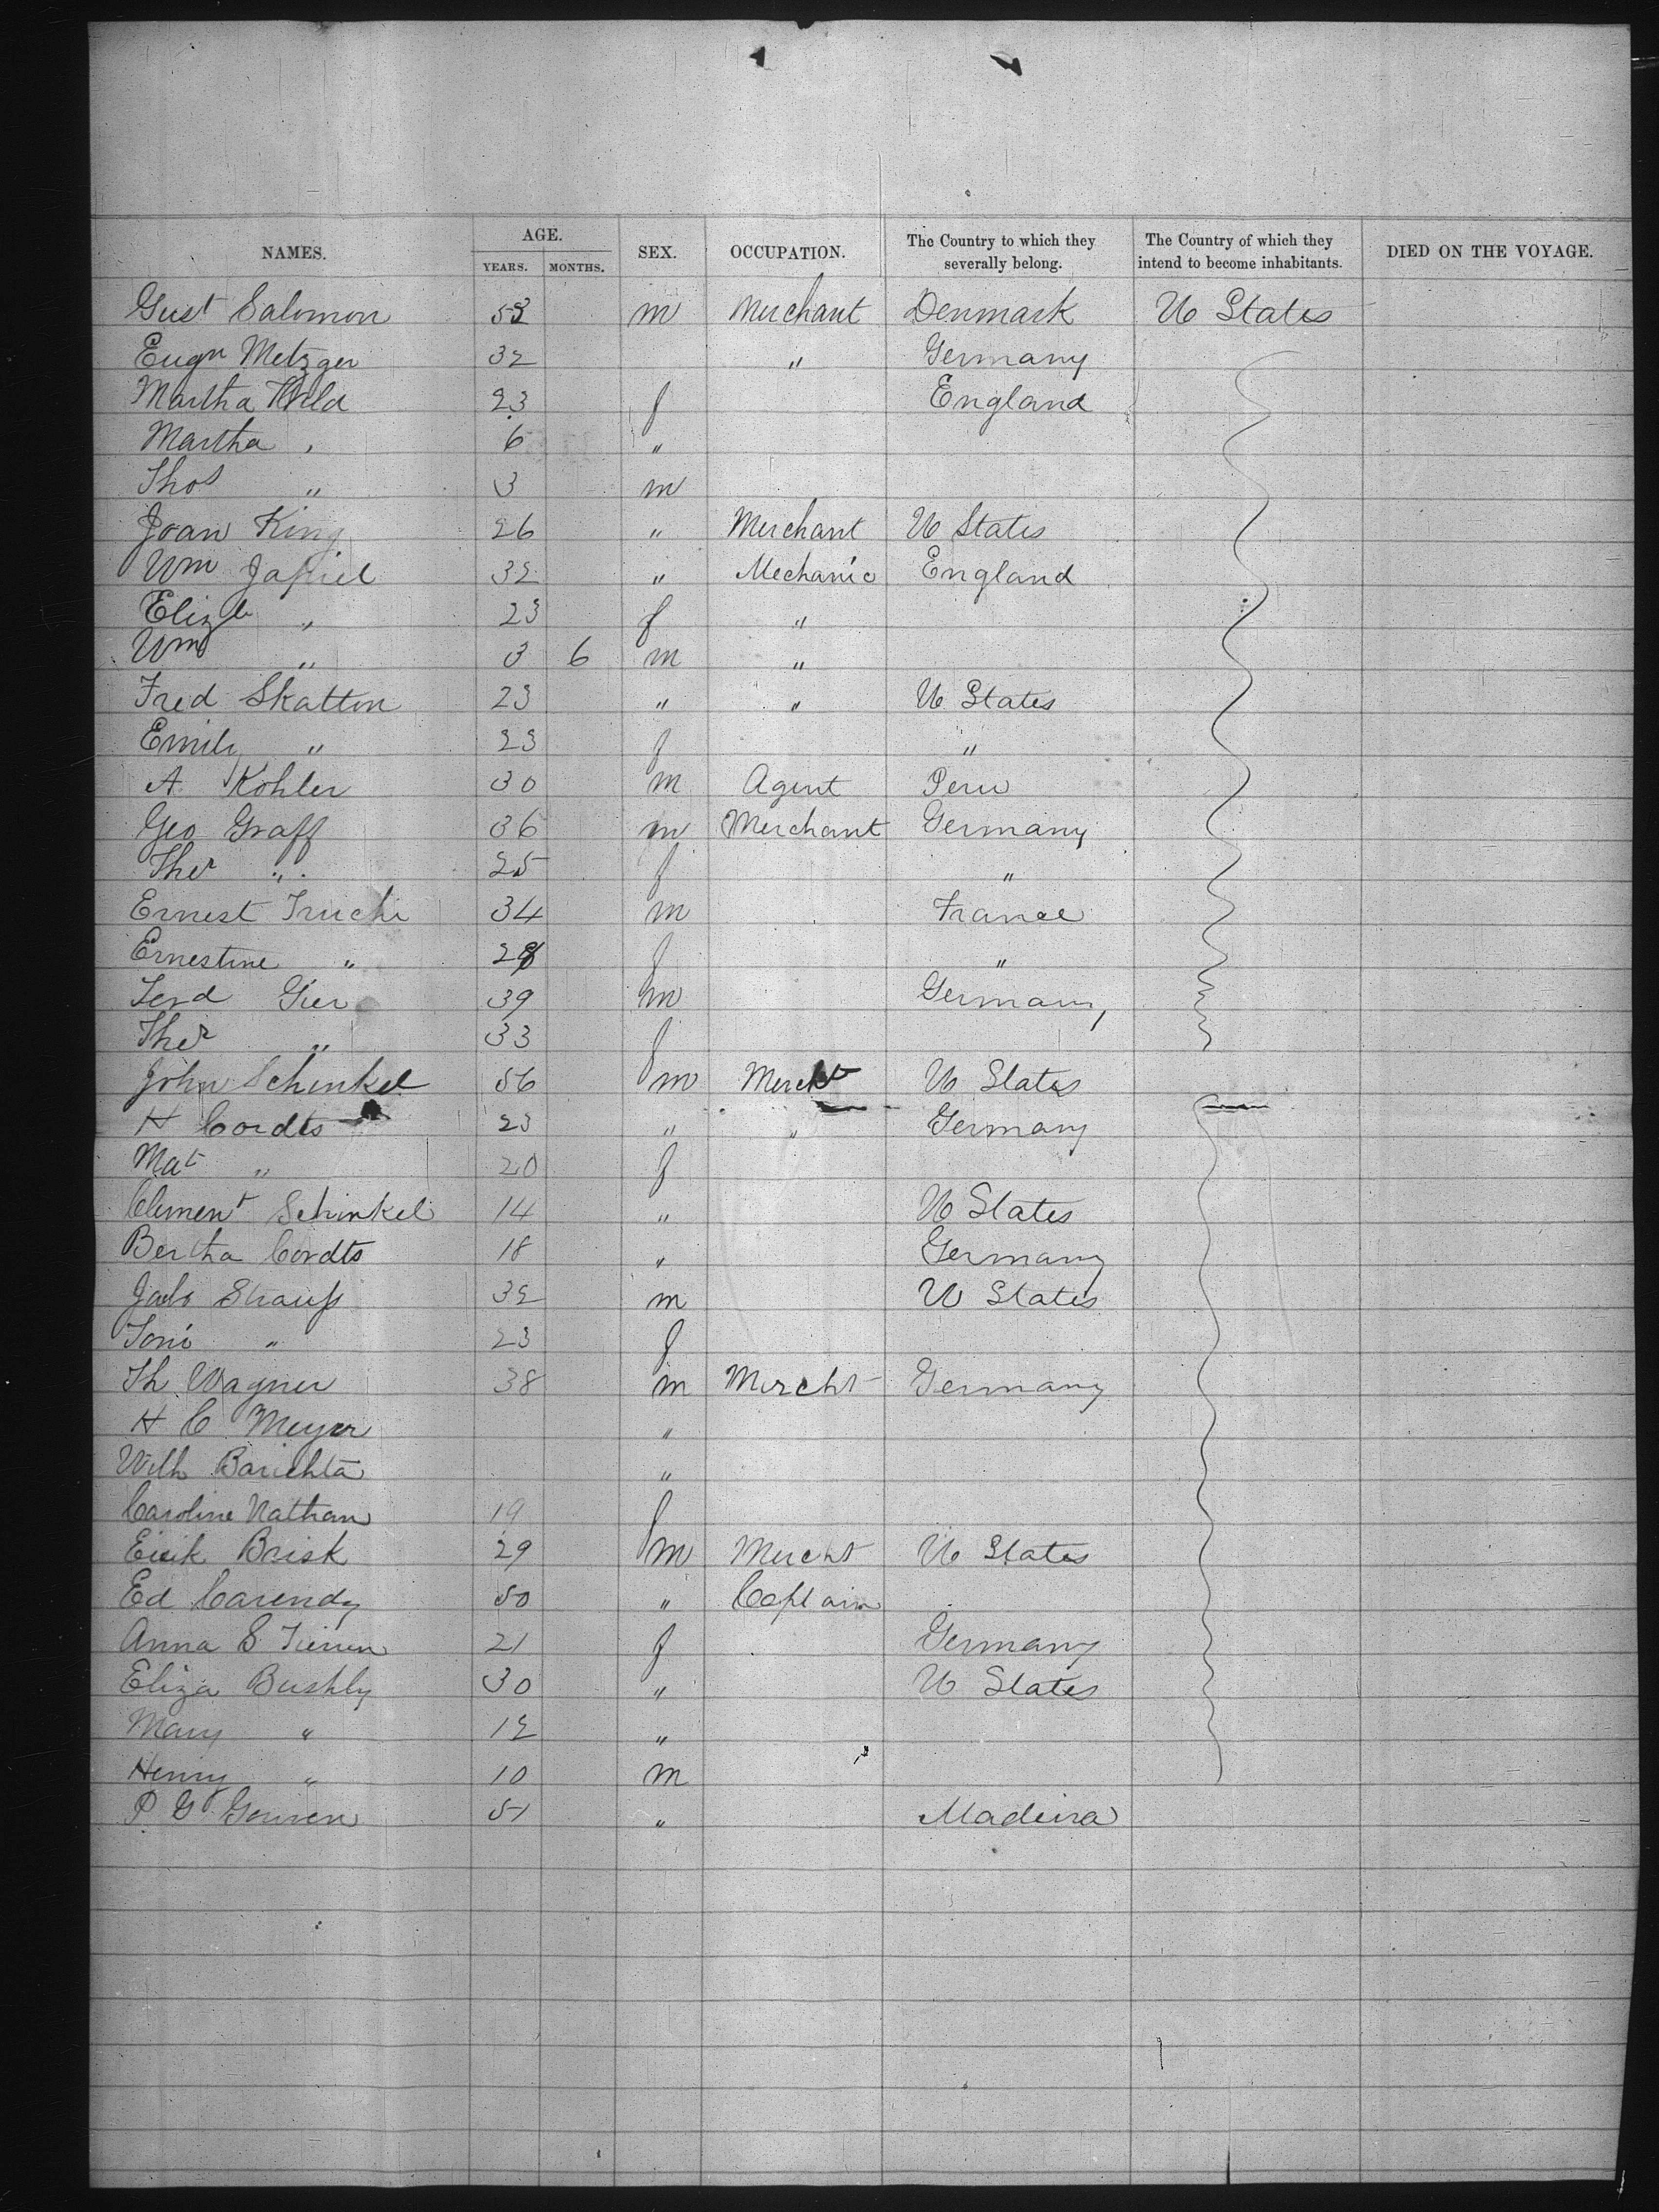 NAMES. AGE. SEX. OCCUPATION. The Country to which they severally belong. The Country of which they intend to become inhabitants. DIED ON THE VOYAGE.
YEARS. MONTHS.
Gust Salomon 53 m Merchant Denmark U States
Eugn Metzger 32 " Germany
Martha 23 f England
Martha " 6 "
Thos " 3 m
Joan King 26 " Merchant U States
Wm 32 " Mechanic England
Elizb " 23 f "
Wm " 3 6 m "
Fred Skatton 23 " " U States
Emily " 23 f "
A. Kohler 30 m Agent Peru
Geo Graff 36 m Merchant Germany
Ther " 25 f "
Ernest Truche 34 m France
Ernestine " 28 f "
Ferd Gier 39 m Germany
Ther " 33 f
John Schinkel 56 m Mercht U States
H Cordts 23 " " Germany
Mat " 20 f
Clement Schinkel 14 " U States
Bertha Cordts 18 " Germany
Jacb Strauss 32 m U States
Toni " 23 f
Th Wagner 38 m Mercht Germany
H C Meyer "
Wilh Barichta "
Caroline Nathan 19 f
Erik Brisk 29 m Mercht U States
Ed Carendy 50 " Captain
Anna S 21 f Germany
Eliza Bushly 30 " U States
Mary " 12 "
Henry " 10 m
P G 51 " Madeira